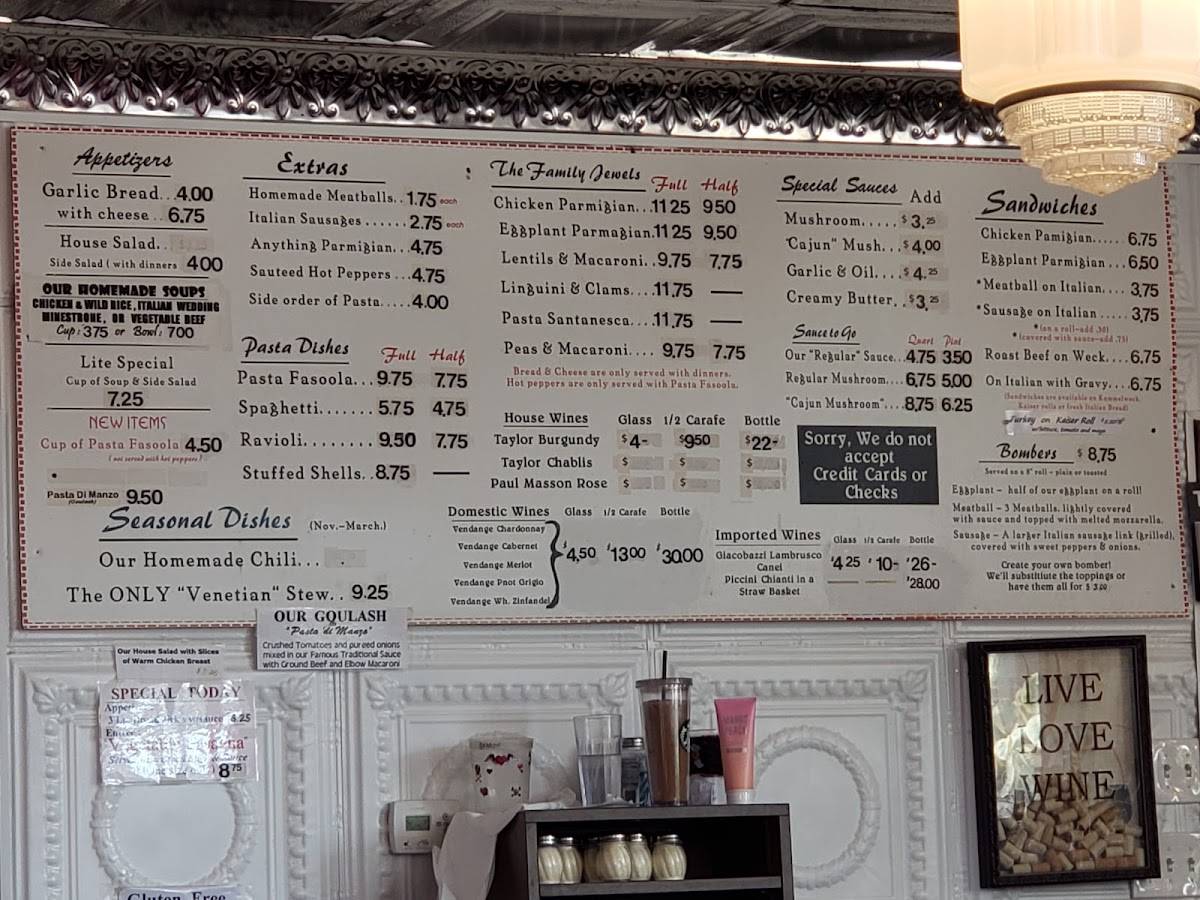 Appetizers
Garlic Bread..4.00
with cheese..6.75
House Salad..
Side Salad (with dinners 400
OUR HOMEMADE SOUPS
CHICKEN & WILD RICE, ITALIAN WEDDING
MINESTRONE, OR VEGETABLE BEEF
Cup: 375 or Bowl: 700
Lite Special
Cup of Soup & Side Salad
7.25
NEW ITEMS
Cup of Pasta Fasoola 4.50
(not served with hot peppers)
Pasta Di Manzo 9.50
(Goulash)
Extras
Homemade Meatballs..1.75 each
Italian Sausages......2.75 each
Anything Parmigian..4.75
Sauteed Hot Peppers...4.75
Side order of Pasta.....4.00
Pasta Dishes Full Half
Pasta Fasoola...9.75 7.75
Spaghetti.......5.75 4.75
Ravioli........9.50 7.75
Stuffed Shells..8.75 —
Seasonal Dishes (Nov.-March.)
Our Homemade Chili...
The ONLY "Venetian" Stew..9.25
The Family Jewels Full Half
Chicken Parmigian...11 25 9 50
Eggplant Parmagian.11 25 9,50
Lentils & Macaroni..9.75 7.75
Linguini & Clams....11.75 —
Pasta Santanesca...11.75 —
Peas & Macaroni.... 9.75 7.75
Bread & Cheese are only served with dinners.
Hot peppers are only served with Pasta Fasoola.
House Wines Glass 1/2 Carafe Bottle
Taylor Burgundy $4- $9.50 $22-
Taylor Chablis $ $ $
Paul Masson Rose $ $ $
Domestic Wines Glass 1/2 Carafe Bottle
Vendange Chardonnay
Vendange Cabernet
Vendange Merlot
Vendange Pnot Grigio
Vendange Wh. Zinfandel
$4,50 $13.00 $30.00
Special Sauces Add
Mushroom..... $3.25
"Cajun" Mush...$4.00
Garlic & Oil....$4.25
Creamy Butter..$3.25
Sauce to Go Quart Pint
Our "Regular" Sauce..4.75 3.50
Regular Mushroom....6,75 5,00
"Cajun Mushroom"....8,75 6.25
Sorry, We do not
accept
Credit Cards or
Checks
Imported Wines Glass 1/2 Carafe Bottle
Giacobazzi Lambrusco $4.25 $10- $26-
Canei
Piccini Chianti in a $28.00
Straw Basket
Sandwiches
Chicken Pamigian...... 6.75
Eggplant Parmigian...6.50
*Meatball on Italian.... 3,75
*Sausage on Italian ..... 3,75
*(on a roll-add .30)
*(covered with sauce-add .75)
Roast Beef on Weck....6.75
On Italian with Gravy....6.75
(Sandwiches are available on Kummelweck,
Kaiser rolls or fresh Italian Bread)
Turkey on Kaiser Roll
w/lettuce, tomato and mayo
Bombers $ 8,75
Served on a 8" roll - plain or toasted
Eggplant - half of our eggplant on a roll!
Meatball - 3 Meatballs, lightly covered
with sauce and topped with melted mozzarella.
Sausage - A larger Italian sausage link (grilled),
covered with sweet peppers & onions.
Create your own bomber!
We'll substitiute the toppings or
have them all for $ 3.00
OUR GOULASH
"Pasta di Manzo"
Crushed Tomatoes and pureed onions
mixed in our Famous Traditional Sauce
with Ground Beef and Elbow Macaroni
Our House Salad with Slices
of Warm Chicken Breast
SPECIAL TODAY
8 75
Gluten Free
LIVE
LOVE
WINE